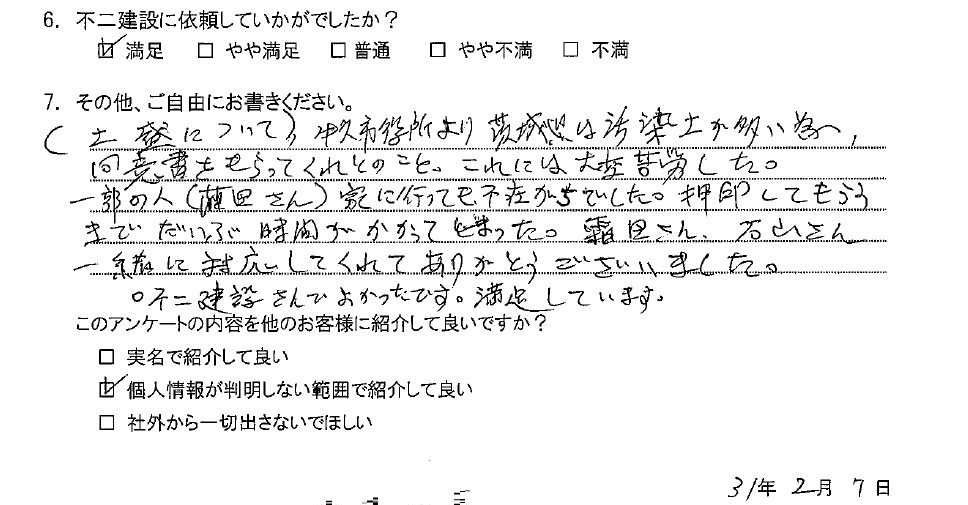 6. 不二建設に依頼していかがでしたか？
☑ 満足 □ やや満足 □ 普通 □ やや不満 □ 不満
7. その他、ご自由にお書きください。
(土盛について) 牛久市役所より茨城県は汚染土が多い為、
同意書をもらってくれとのこと。これには大変苦労した。
一部の人(さん)家に行っても不在がちでした。押印してもらう
までだいぶ時間がかかってしまった。霜田さん、石山さん
一緒に対応してくれてありがとうございました。
○不二建設さんでよかったです。満足しています。
このアンケートの内容を他のお客様に紹介して良いですか？
□ 実名で紹介して良い
☑ 個人情報が判明しない範囲で紹介して良い
□ 社外から一切出さないでほしい
31年 2月 7日